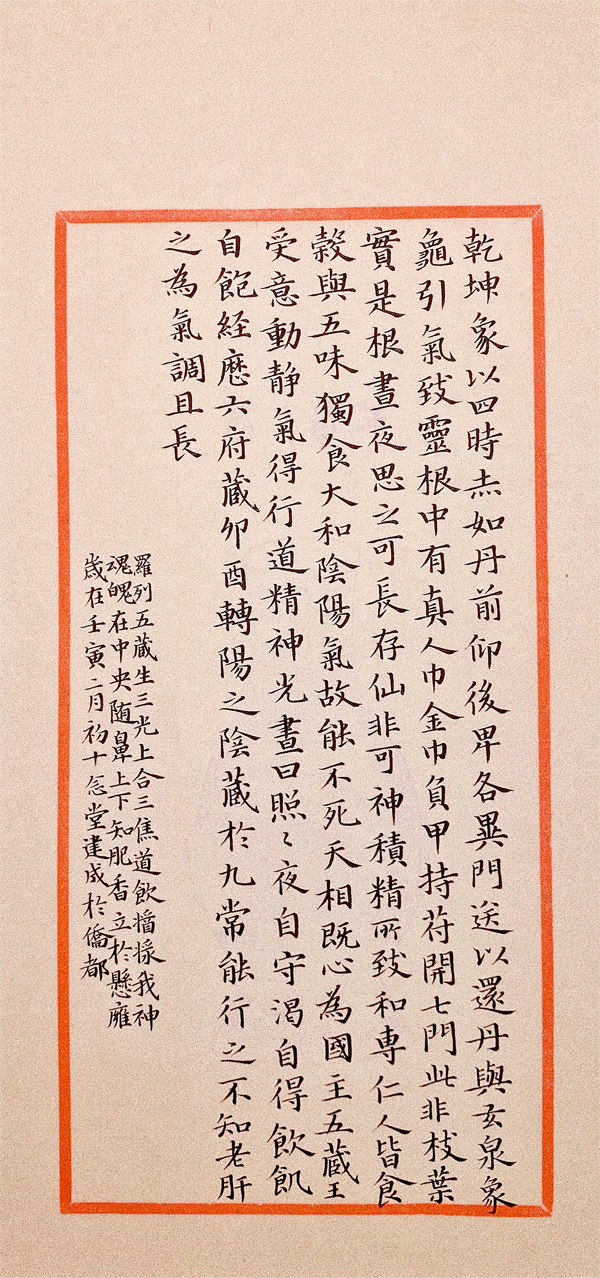 乾坤象以四時赤如丹前仰後卑各異門送以還丹與玄泉象
龜引氣致靈根中有真人巾金巾負甲持苻開七門此非枝葉
實是根晝夜思之可長存仙非可神積精所致和專仁人皆食
穀與五味獨食大和陰陽氣故能不死天相既心為國主五藏王
受意動静氣得行道精神光晝日照〻夜自守渴自得飲飢
自飽経歷六府藏卯酉轉陽之陰藏於九常能行之不知老肝
之為氣調且長
羅列五蔵生三光上合三焦道飲
我神
魂魄在中央随鼻上下知肥香立於懸廱
歲在壬寅二月初十
堂建成於僑都